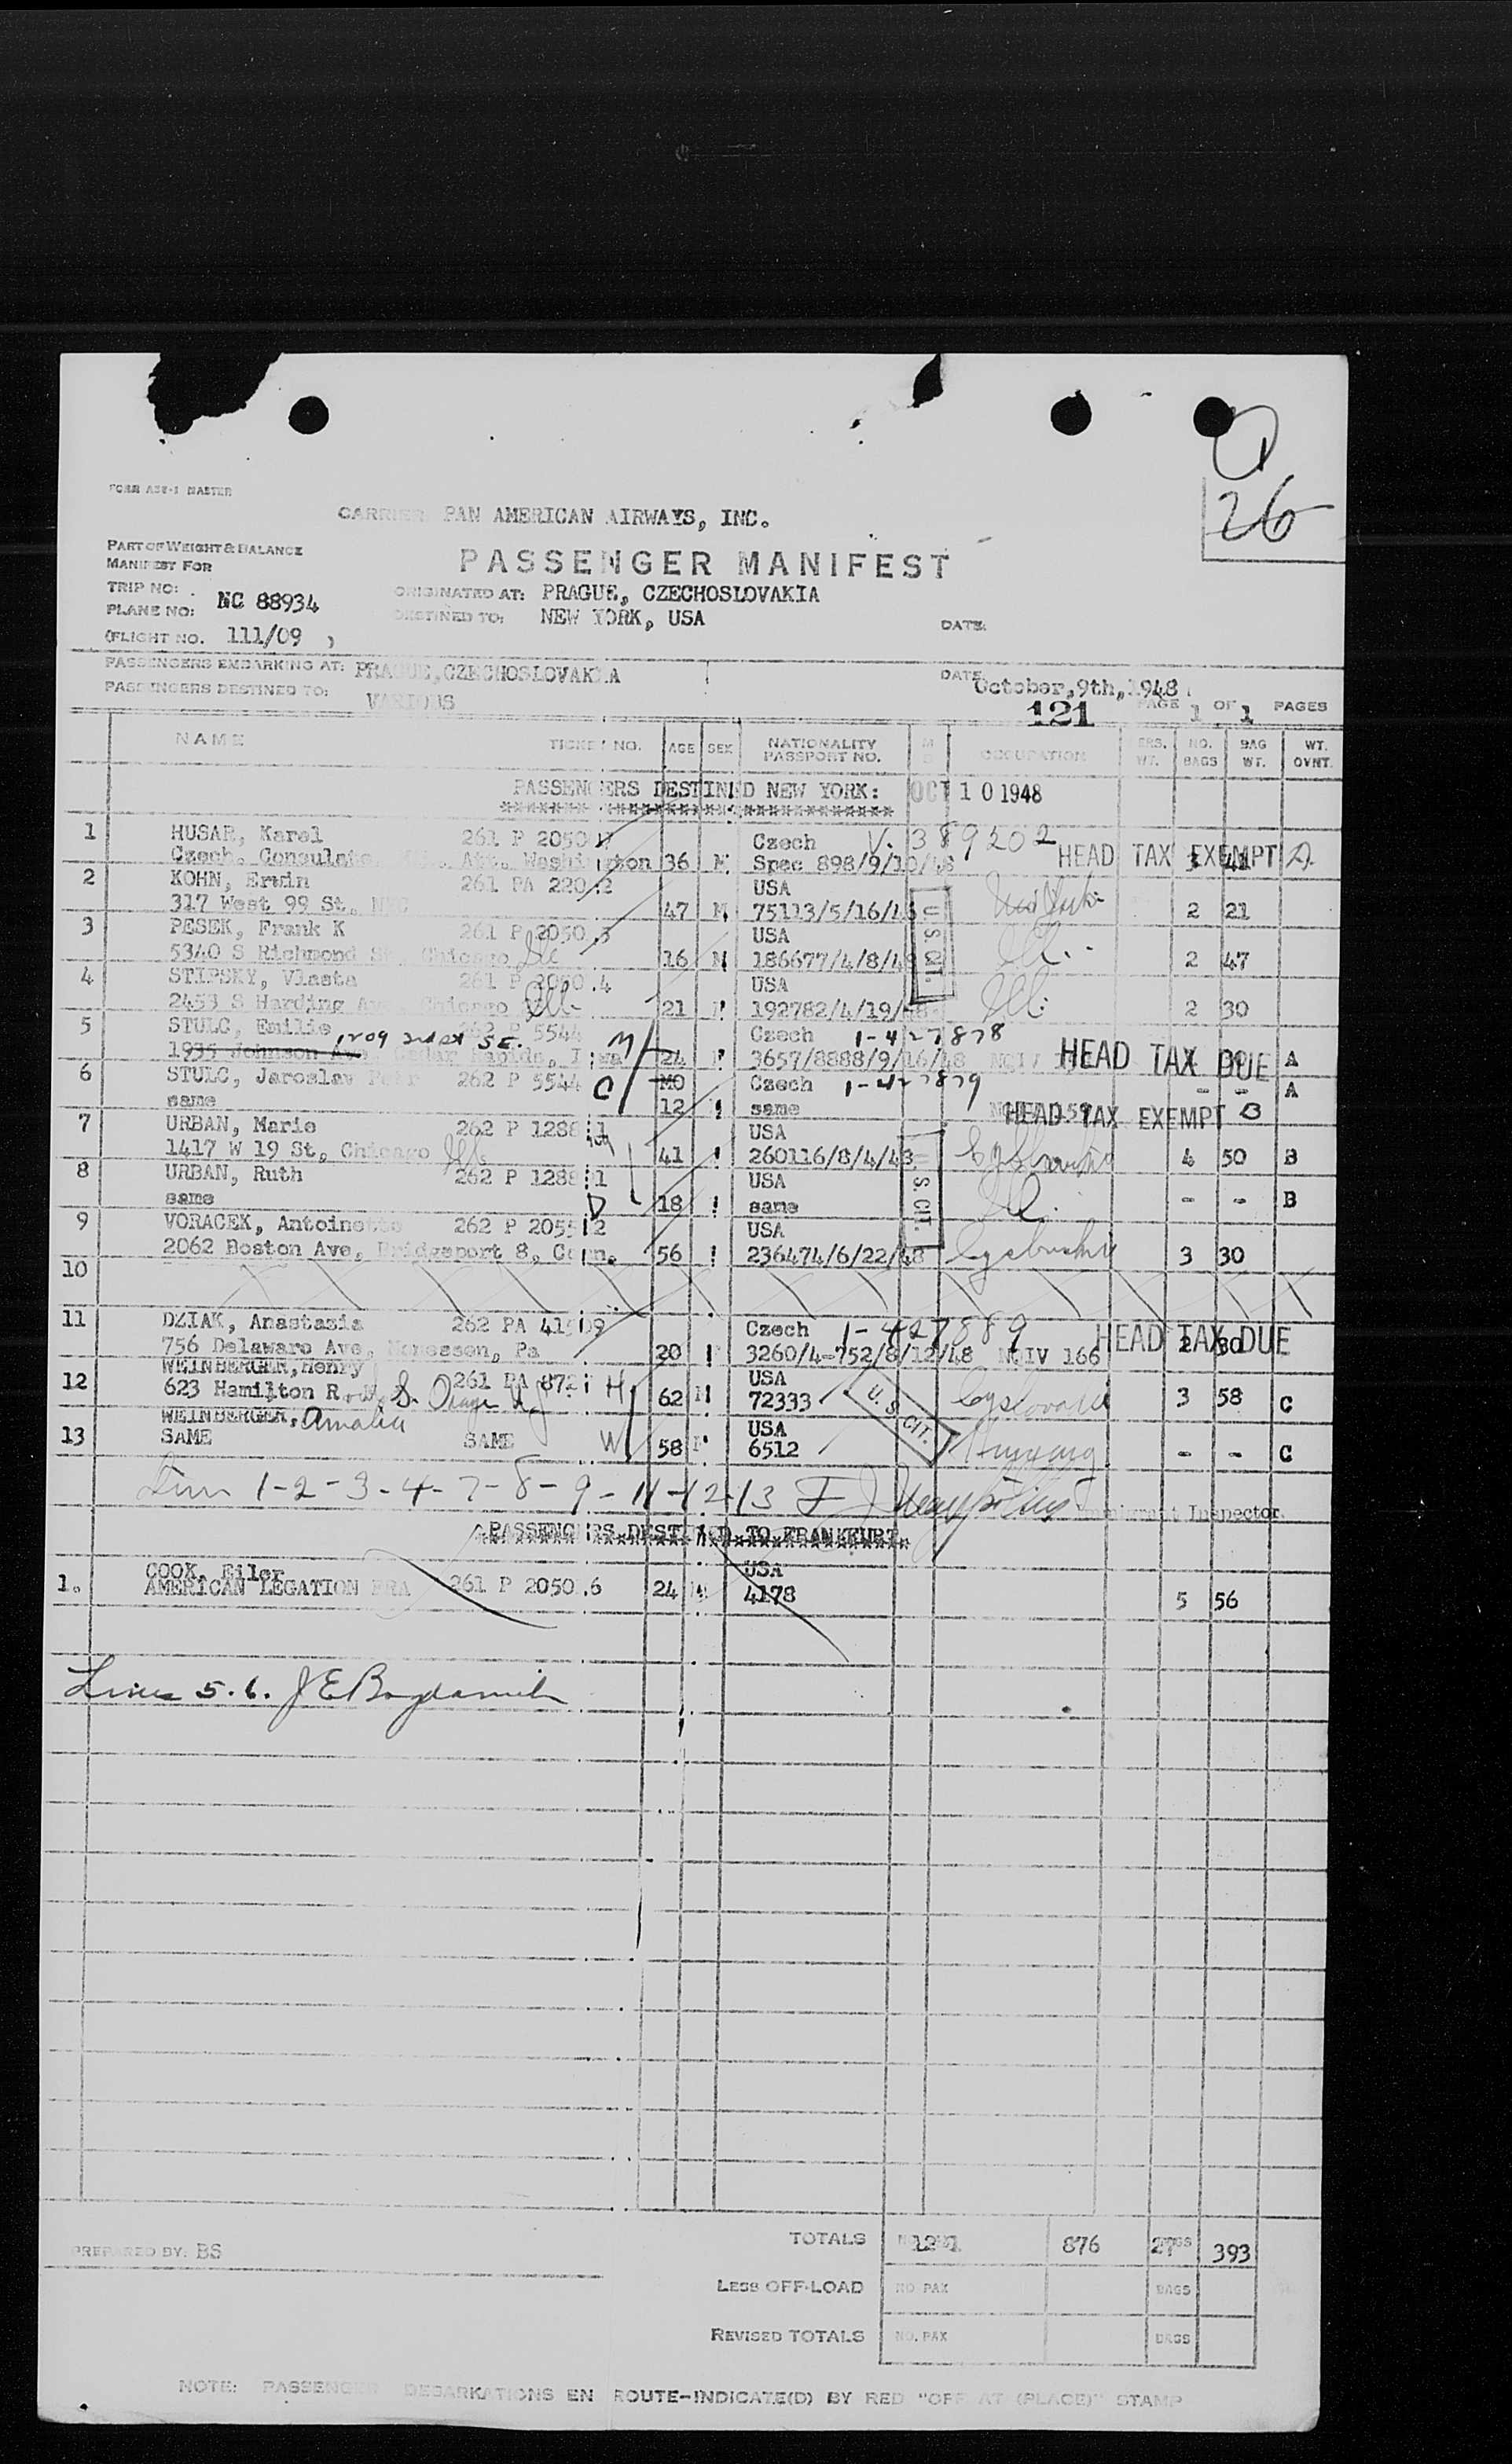 26
FORM ASE-1 MASTER
CARRIER PAN AMERICAN AIRWAYS, INC.
PART OF WEIGHT & BALANCE
MANIFEST FOR
PASSENGER MANIFEST
TRIP NO:
PLANE NO: NC 88934
ORIGINATED AT: PRAGUE, CZECHOSLOVAKIA
DESTINED TO: NEW YORK, USA
DATE:
(FLIGHT NO. 111/09 )
PASSENGERS EMBARKING AT: PRAGUE,CZECHOSLOVAKIA
DATE: October,9th,1948
PASSENGERS DESTINED TO: VARIOUS
121 PAGE 1 OF 1 PAGES
NAME TICKET NO. AGE SEX NATIONALITY PASSPORT NO. OCCUPATION NO. BAGS BAG WT. WT. OVNT.
PASSENGERS DESTINED NEW YORK: OCT 10 1948
1 HUSAR, Karel 261 P 2050 Czech V. 389202
Czech. Consulate, Att. Washington 36 M Spec 898/9/10/48 HEAD TAX EXEMPT
2 KOHN, Erwin 261 PA 220 2 USA
317 West 99 St. NYC 47 M 75113/5/16/46 2 21
3 PESEK, Frank K 261 P 2050.3 USA
5340 S Richmond St, Chicago Ill 16 M 186677/4/8/48 Ill. 2 47
4 STIPSKY, Vlasta 261 P 2050.4 USA
2453 S Harding Ave, Chicago Ill 21 F 192782/4/19/48 Ill. 2 30
5 STULC, Emilie 262 P 5544 Czech 1-427878
1935 Johnson Ave, Cedar Rapids, Iowa M 24 F 3657/8888/9/16/48 HEAD TAX DUE A
6 STULC, Jaroslav Petr 262 P 5544 C MO Czech 1-427879 - - A
same 12 same HEAD TAX EXEMPT
7 URBAN, Marie 262 P 1288 1 USA
1417 W 19 St, Chicago Ill 41 260116/8/4/48 4 50 B
8 URBAN, Ruth 262 P 1288 1 USA
same D 18 same Ill. - - B
9 VORACEK, Antoinette 262 P 2055 2 USA
2062 Boston Ave, Bridgeport 8, Conn. 56 236474/6/22/48 3 30
10
11 DZIAK, Anastasia 262 PA 41509 Czech 1-427889 HEAD TAX DUE
756 Delaware Ave, Monessen, Pa 20 F 3260/4-752/8/12/48 NQIV 166 2 30
12 WEINBERGER,Henry 261 PA 872 H USA
623 Hamilton R. S. Orange NJ 62 M 72333 U. S. CIT. 3 58 C
13 WEINBERGER, Amalia USA
SAME SAME W 58 F 6512 Hungary - - C
1-2-3-4-7-8-9-11-12-13 Immigrant Inspector
PASSENGERS DESTINED TO FRANKFURT
1. COOK, USA
AMERICAN LEGATION FRA 261 P 2050.6 24 M 4178 5 56
Lines 5.6.
TOTALS 876 27 BAGS 393
PREPARED BY: BS
LESS OFF-LOAD NO. PAX BAGS
REVISED TOTALS NO. PAX BAGS
NOTE: PASSENGER DEBARKATIONS EN ROUTE-INDICATE(D) BY RED "OFF AT (PLACE)" STAMP